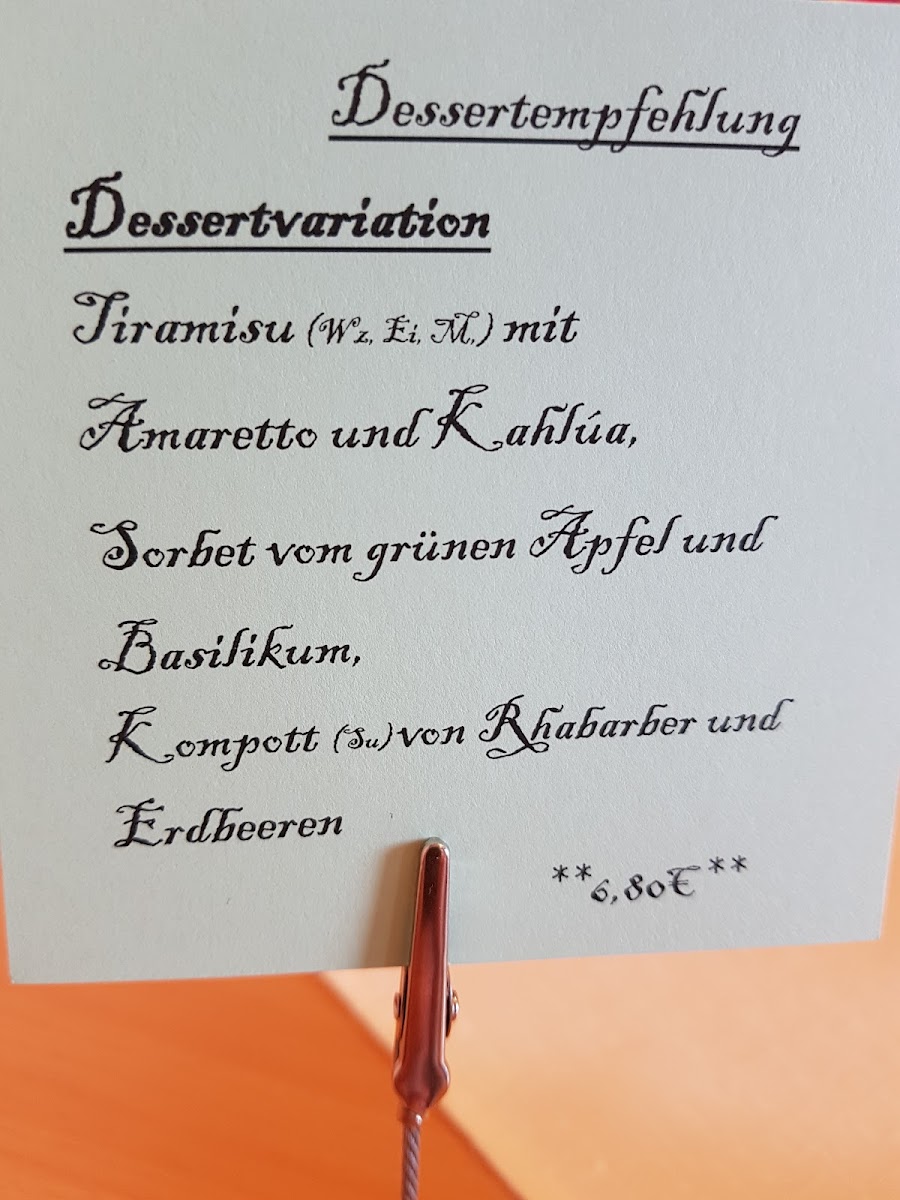 Dessertempfehlung
Dessertvariation
Tiramisu (Wz, Ei, M,) mit
Amaretto und Kahlúa,
Sorbet vom grünen Apfel und
Basilikum,
Kompott (Su) von Rhabarber und
Erdbeeren
**6,80€**